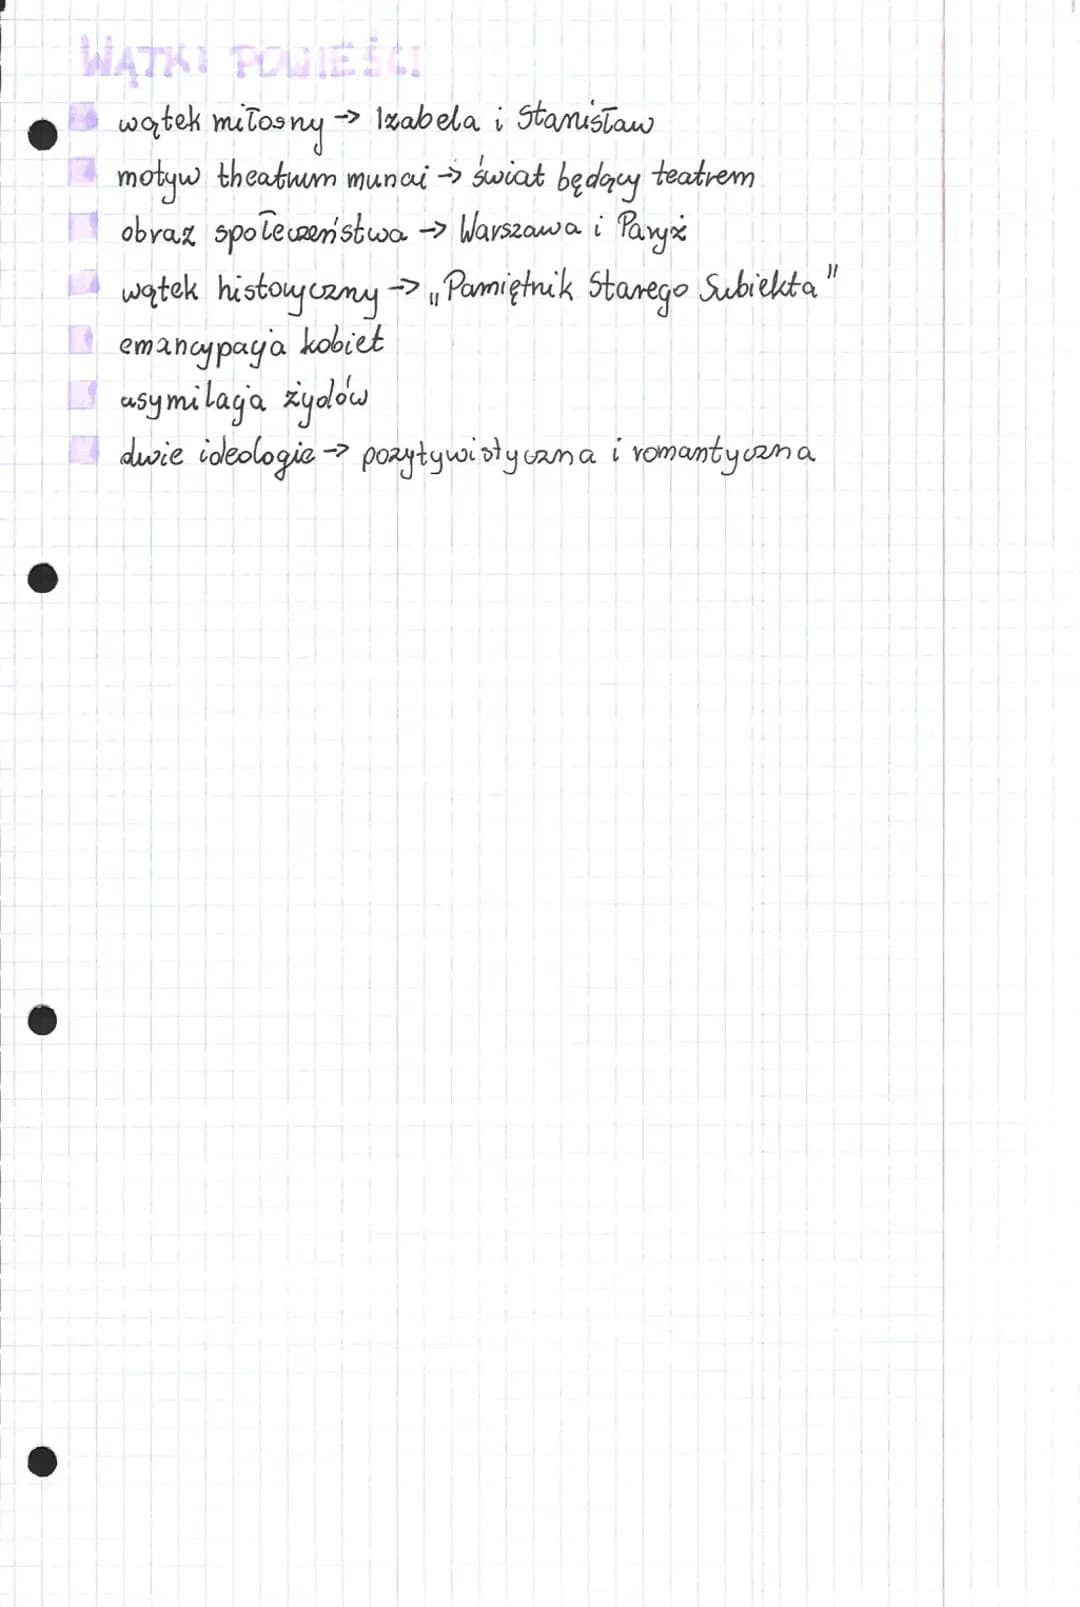 WĄTKI POWIEŚCI
wątek miłosny -> Izabela i Stanisław
motyw theatrum mundi -> świat będący teatrem
obraz społeczeństwa -> Warszawa i Paryż
wątek historyczny -> „Pamiętnik Starego Subiekta"
emancypacja kobiet
asymilacja żydów
dwie ideologie -> pozytywistyczna i romantyczna